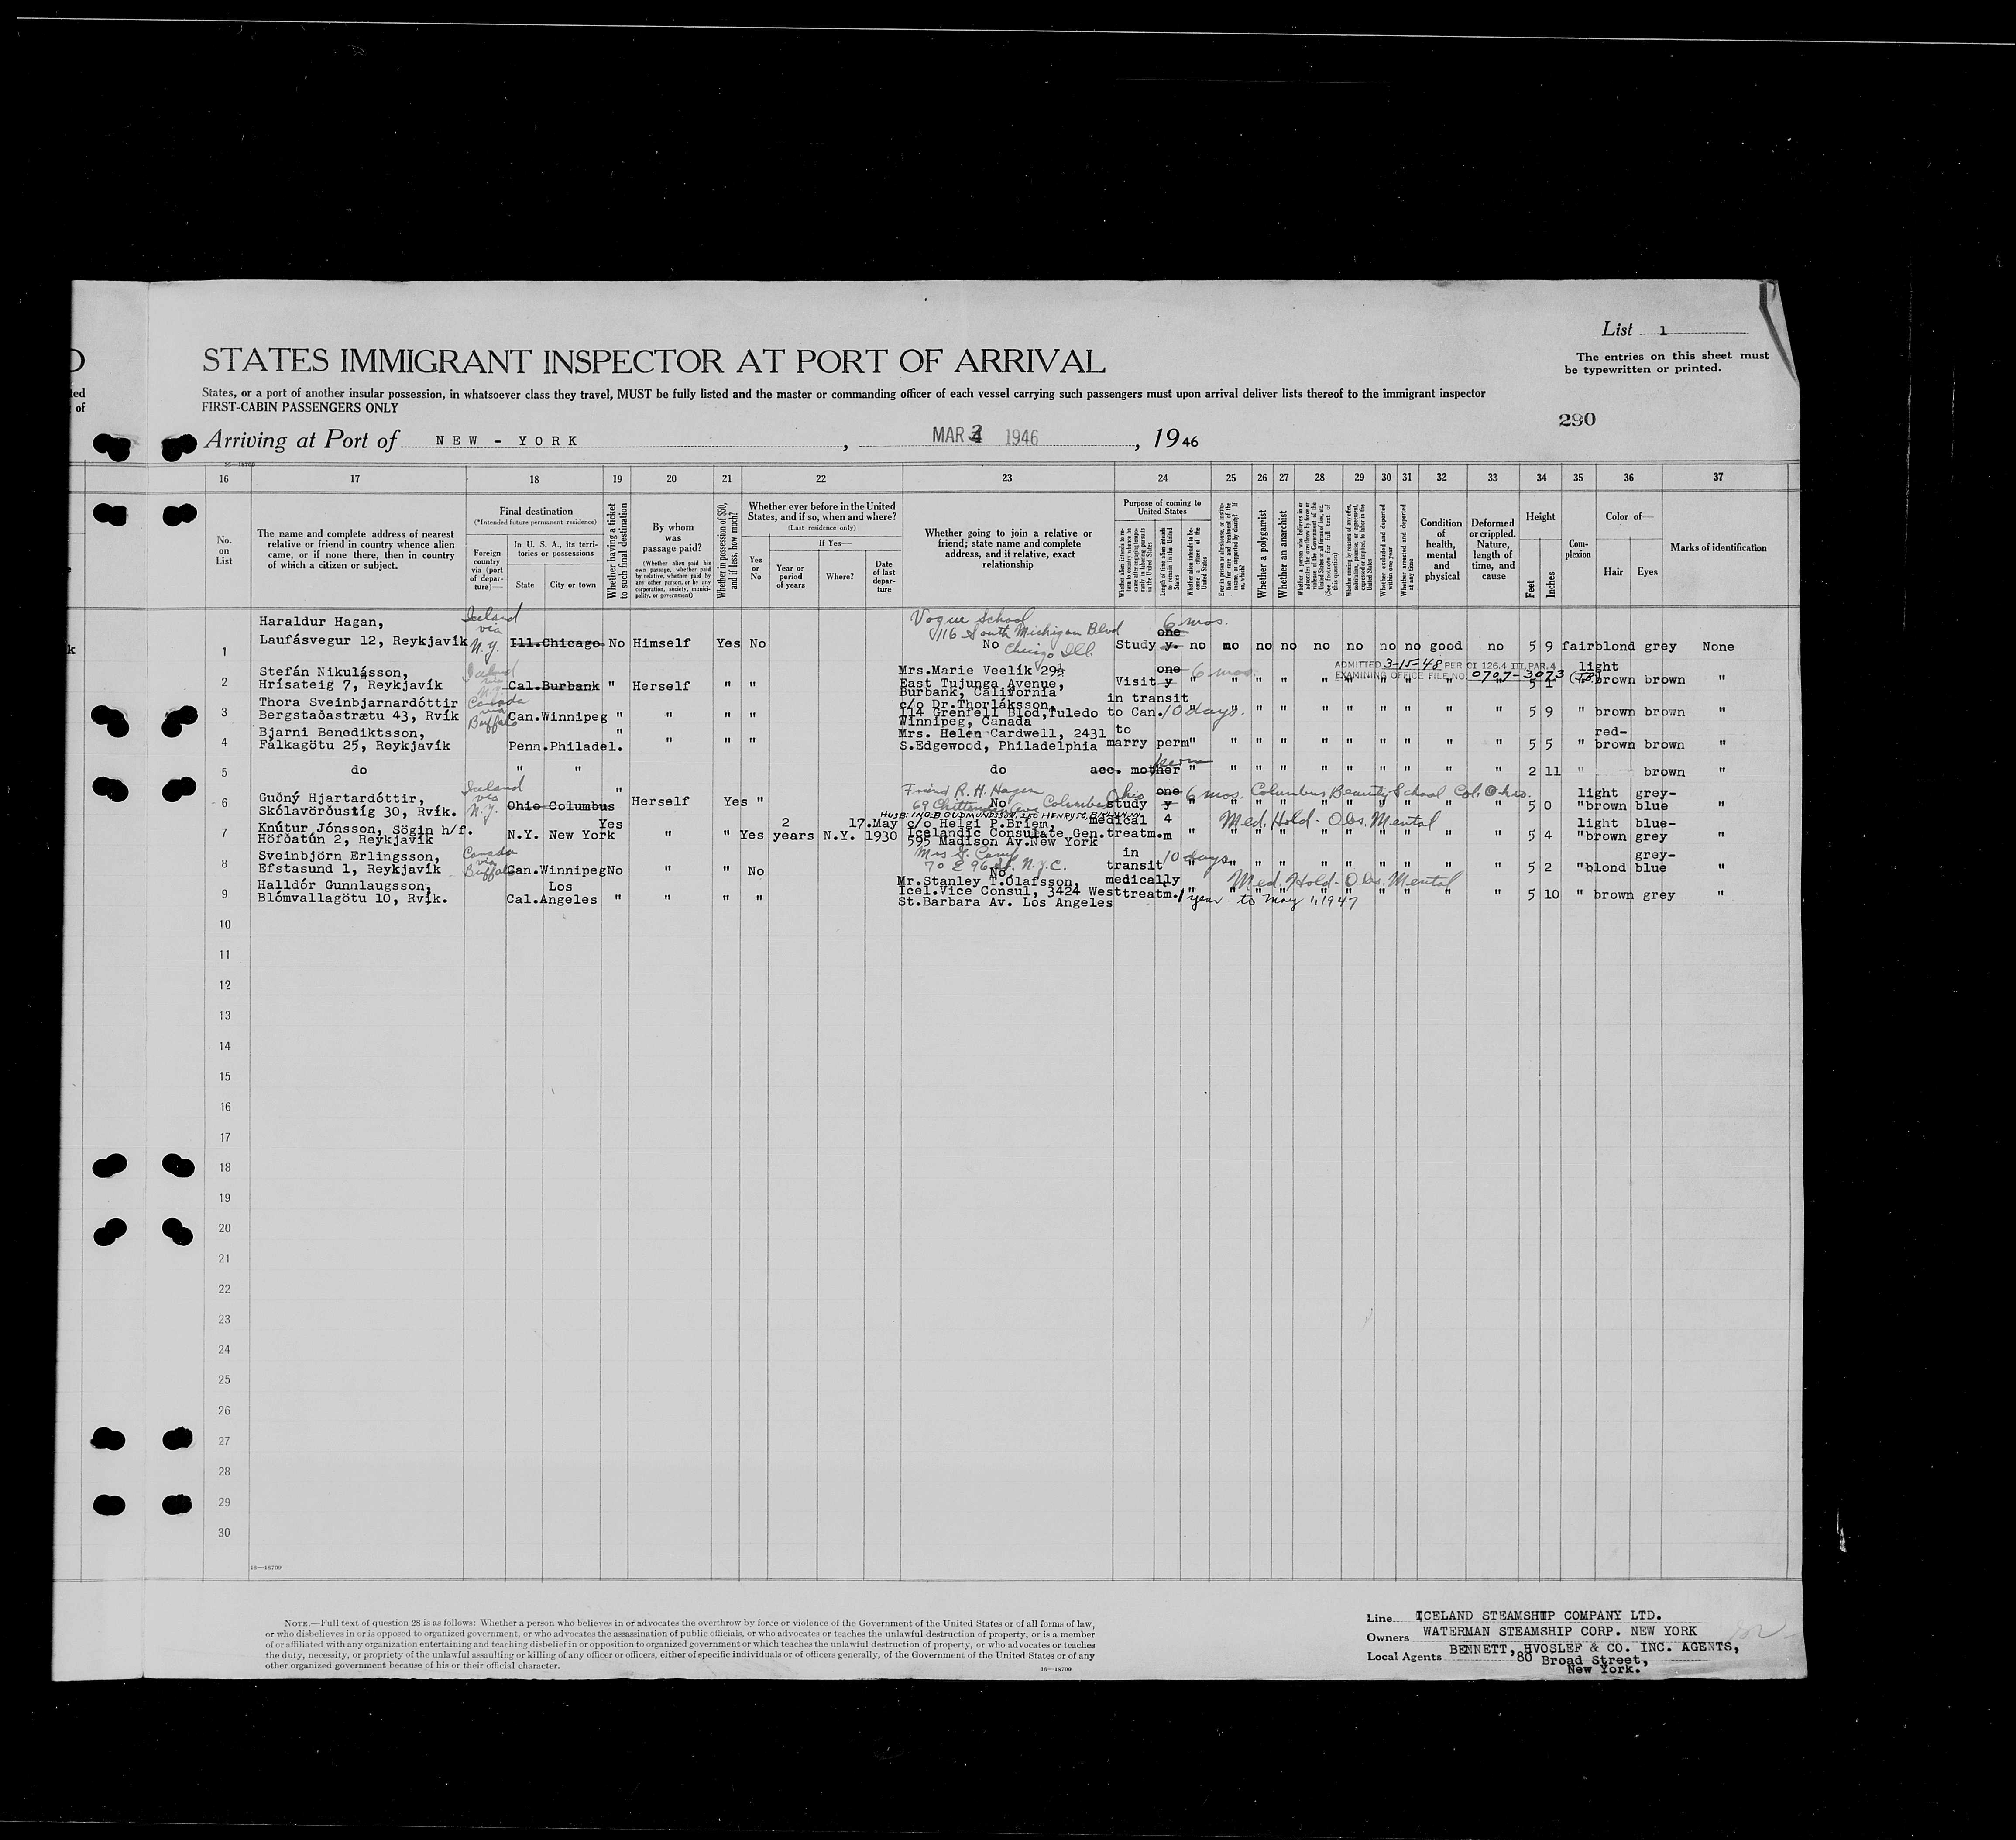 List 1
The entries on this sheet must
be typewritten or printed.
STATES IMMIGRANT INSPECTOR AT PORT OF ARRIVAL
States, or a port of another insular possession, in whatsoever class they travel, MUST be fully listed and the master or commanding officer of each vessel carrying such passengers must upon arrival deliver lists thereof to the immigrant inspector
FIRST-CABIN PASSENGERS ONLY
290
Arriving at Port of NEW - YORK, MAR 1946, 1946
16—18700
16 17 18 19 20 21 22 23 24 25 26 27 28 29 30 31 32 33 34 35 36 37
No. on List
The name and complete address of nearest relative or friend in country whence alien came, or if none there, then in country of which a citizen or subject.
Final destination
(*Intended future permanent residence)
Foreign country via (port of departure)—
In U. S. A., its territories or possessions
State City or town
Whether having a ticket to such final destination
By whom was passage paid?
(Whether alien paid his own passage, whether paid by relative, whether paid by any other person, or by any corporation, society, municipality, or government)
Whether in possession of $50, and if less, how much?
Whether ever before in the United States, and if so, when and where?
(Last residence only)
Yes or No
If Yes—
Year or period of years
Where?
Date of last departure
Whether going to join a relative or friend; state name and complete address, and if relative, exact relationship
Purpose of coming to United States
Whether a polygamist
Whether an anarchist
Condition of health, mental and physical
Deformed or crippled. Nature, length of time, and cause
Height
Feet Inches
Complexion
Color of—
Hair Eyes
Marks of identification
1 Haraldur Hagan, Iceland via N.Y. Vogue School 6 mos.
116 South Michigan Blvd one
Laufásvegur 12, Reykjavík Ill.Chicago No Himself Yes No No Chicago Ill. Study y. no mo no no no no no no good no 5 9 fair blond grey None
2 Stefán Nikulásson, Iceland via N.Y. Mrs.Marie Veelik 29½ one 6 mos. ADMITTED 3-15-48 PER OI 126.4 III, PAR. 4 light
Hrísateig 7, Reykjavík Cal.Burbank " Herself " " East Tujunga Avenue, Visit y " " " " " " " " " " " EXAMINING OFFICE FILE NO. 0707-3073 5 1 " brown brown "
Burbank, California
3 Thora Sveinbjarnardóttir Canada via Buffalo c/o Dr.Thorláksson, in transit
Bergstaðastrætu 43, Rvík Can.Winnipeg " " " " 114 Grenfell Blod,Tuledo to Can. 10 days. " " " " " " " " " " 5 9 " brown brown "
Winnipeg, Canada
4 Bjarni Benediktsson, " Mrs. Helen Cardwell, 2431 to red-
Fálkagötu 25, Reykjavík Penn.Philadel. " " " S.Edgewood, Philadelphia marry perm " " " " " " " " " " " 5 5 " brown brown "
5 do " " do acc. mother perm " " " " " " " " " " " 2 11 " brown "
6 Guðný Hjartardóttir, Iceland via N.Y. " Friend R. H. Hagen Ohio one 6 mos. Columbus Beauty School Col. Ohio. light grey-
Skólavörðustíg 30, Rvík. Ohio Columbus Herself Yes " 69 Chittenden Ave Columbus No study y " " " " " " " " " " 5 0 " brown blue "
7 Knútur Jónsson, Sögin h/f. Yes 2 17.May c/o Helgi P.Briem, medical 4 Med. Hold - Obs. Mental light blue-
Höfðatún 2, Reykjavík N.Y. New York " " Yes years N.Y. 1930 Icelandic Consulate Gen. treatm. m " " " " " " " " " " " 5 4 " brown grey "
595 Madison Av.New York
8 Sveinbjörn Erlingsson, Canada via Buffalo in 10 days grey-
Efstasund 1, Reykjavík Can.Winnipeg No " " No 70 E 96 St. N.Y.C. No transit " " " " " " " " " " 5 2 " blond blue "
9 Halldór Gunnlaugsson, Los Mr.Stanley T.Ólafsson, medically Med. Hold - Obs. Mental
Blómvallagötu 10, Rvík. Cal.Angeles " " " " Icel.Vice Consul, 3424 West treatm. 1 year - to May 1, 1947 " " " " 5 10 " brown grey "
St.Barbara Av. Los Angeles
10
11
12
13
14
15
16
17
18
19
20
21
22
23
24
25
26
27
28
29
30
16—18700
NOTE.—Full text of question 28 is as follows: Whether a person who believes in or advocates the overthrow by force or violence of the Government of the United States or of all forms of law,
or who disbelieves in or is opposed to organized government, or who advocates the assassination of public officials, or who advocates or teaches the unlawful destruction of property, or is a member
of or affiliated with any organization entertaining and teaching disbelief in or opposition to organized government or which teaches the unlawful destruction of property, or who advocates or teaches
the duty, necessity, or propriety of the unlawful assaulting or killing of any officer or officers, either of specific individuals or of officers generally, of the Government of the United States or of any
other organized government because of his or their official character.
16—18700
Line ICELAND STEAMSHIP COMPANY LTD.
Owners WATERMAN STEAMSHIP CORP. NEW YORK
Local Agents BENNETT, HVOSLEF & CO. INC. AGENTS,
80 Broad Street,
New York.